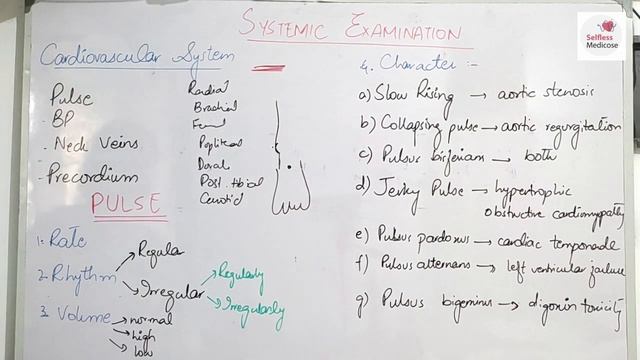 SYSTEMIC EXAMINATION
Selfless
Medicose
Cardiovascular System
Pulse
BP
Neck Veins
Precordium
Radial
Brachial
Femral
Popliteal
Dorsal
Post. tibial
Carotid
PULSE
1. Rate
2. Rhythm
Regular
Irregular
Regularly
Irregularly
3. Volume
normal
high
low
4. Character :-
a) Slow Rising → aortic stenosis
b) Collapsing pulse → aortic regurgitation
c) Pulsus bisferiam → both
d) Jerky Pulse → hypertrophic
obstructive cardiomypathy
e) Pulsus pardoxus → cardiac temponade
f) Pulsus alternans → left ventricular failure
g) Pulsus bigeminus → digoxin toxicity